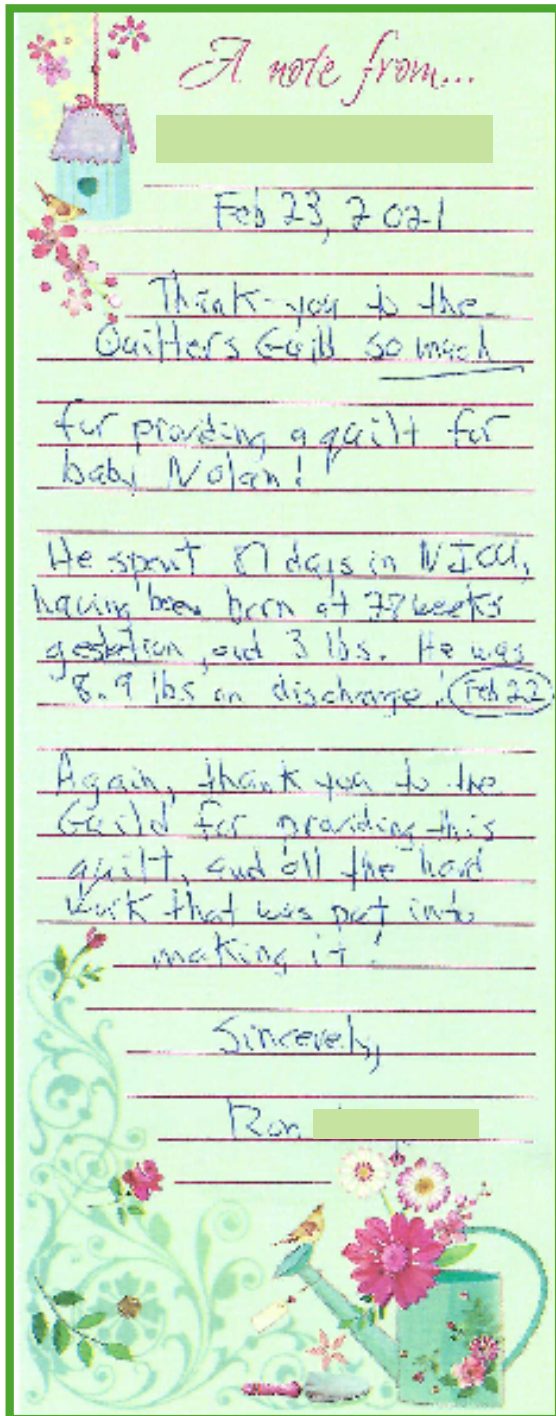 A note from...
Feb 23, 2021
Thank-you to the
Quilters Guild so much
for providing a quilt for
baby Nolan!
He spent days in NICU,
having been born at 28 weeks
gestation, and 3 lbs. He was
8.9 lbs on discharge! Feb 22
Again, thank you to the
Guild for providing this
quilt, and all the hard
work that was put into
making it!
Sincerely,
Ron